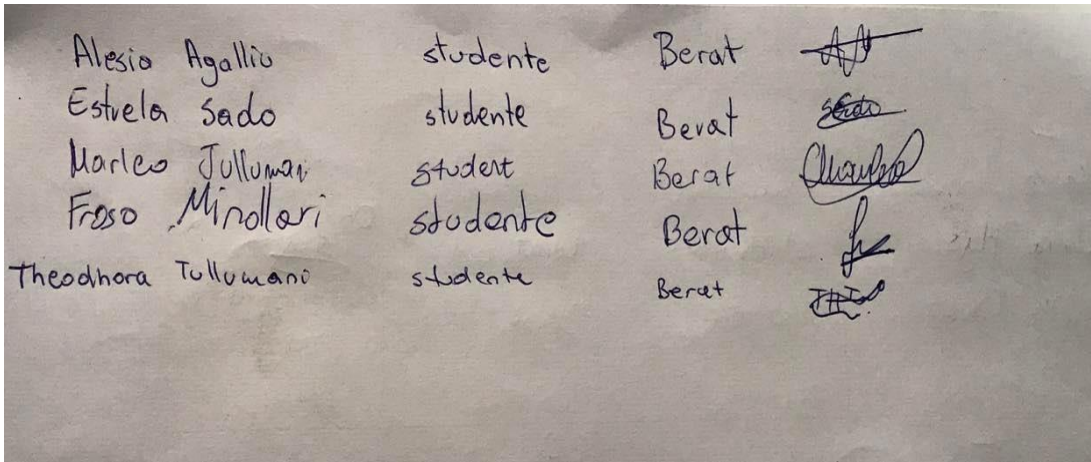 Alesia Agalliu studente Berat
Estrela Sado studente Berat Sado
Marleo Tullumani student Berat
Froso Minollari studente Berat
Theodhora Tullumani studente Berat